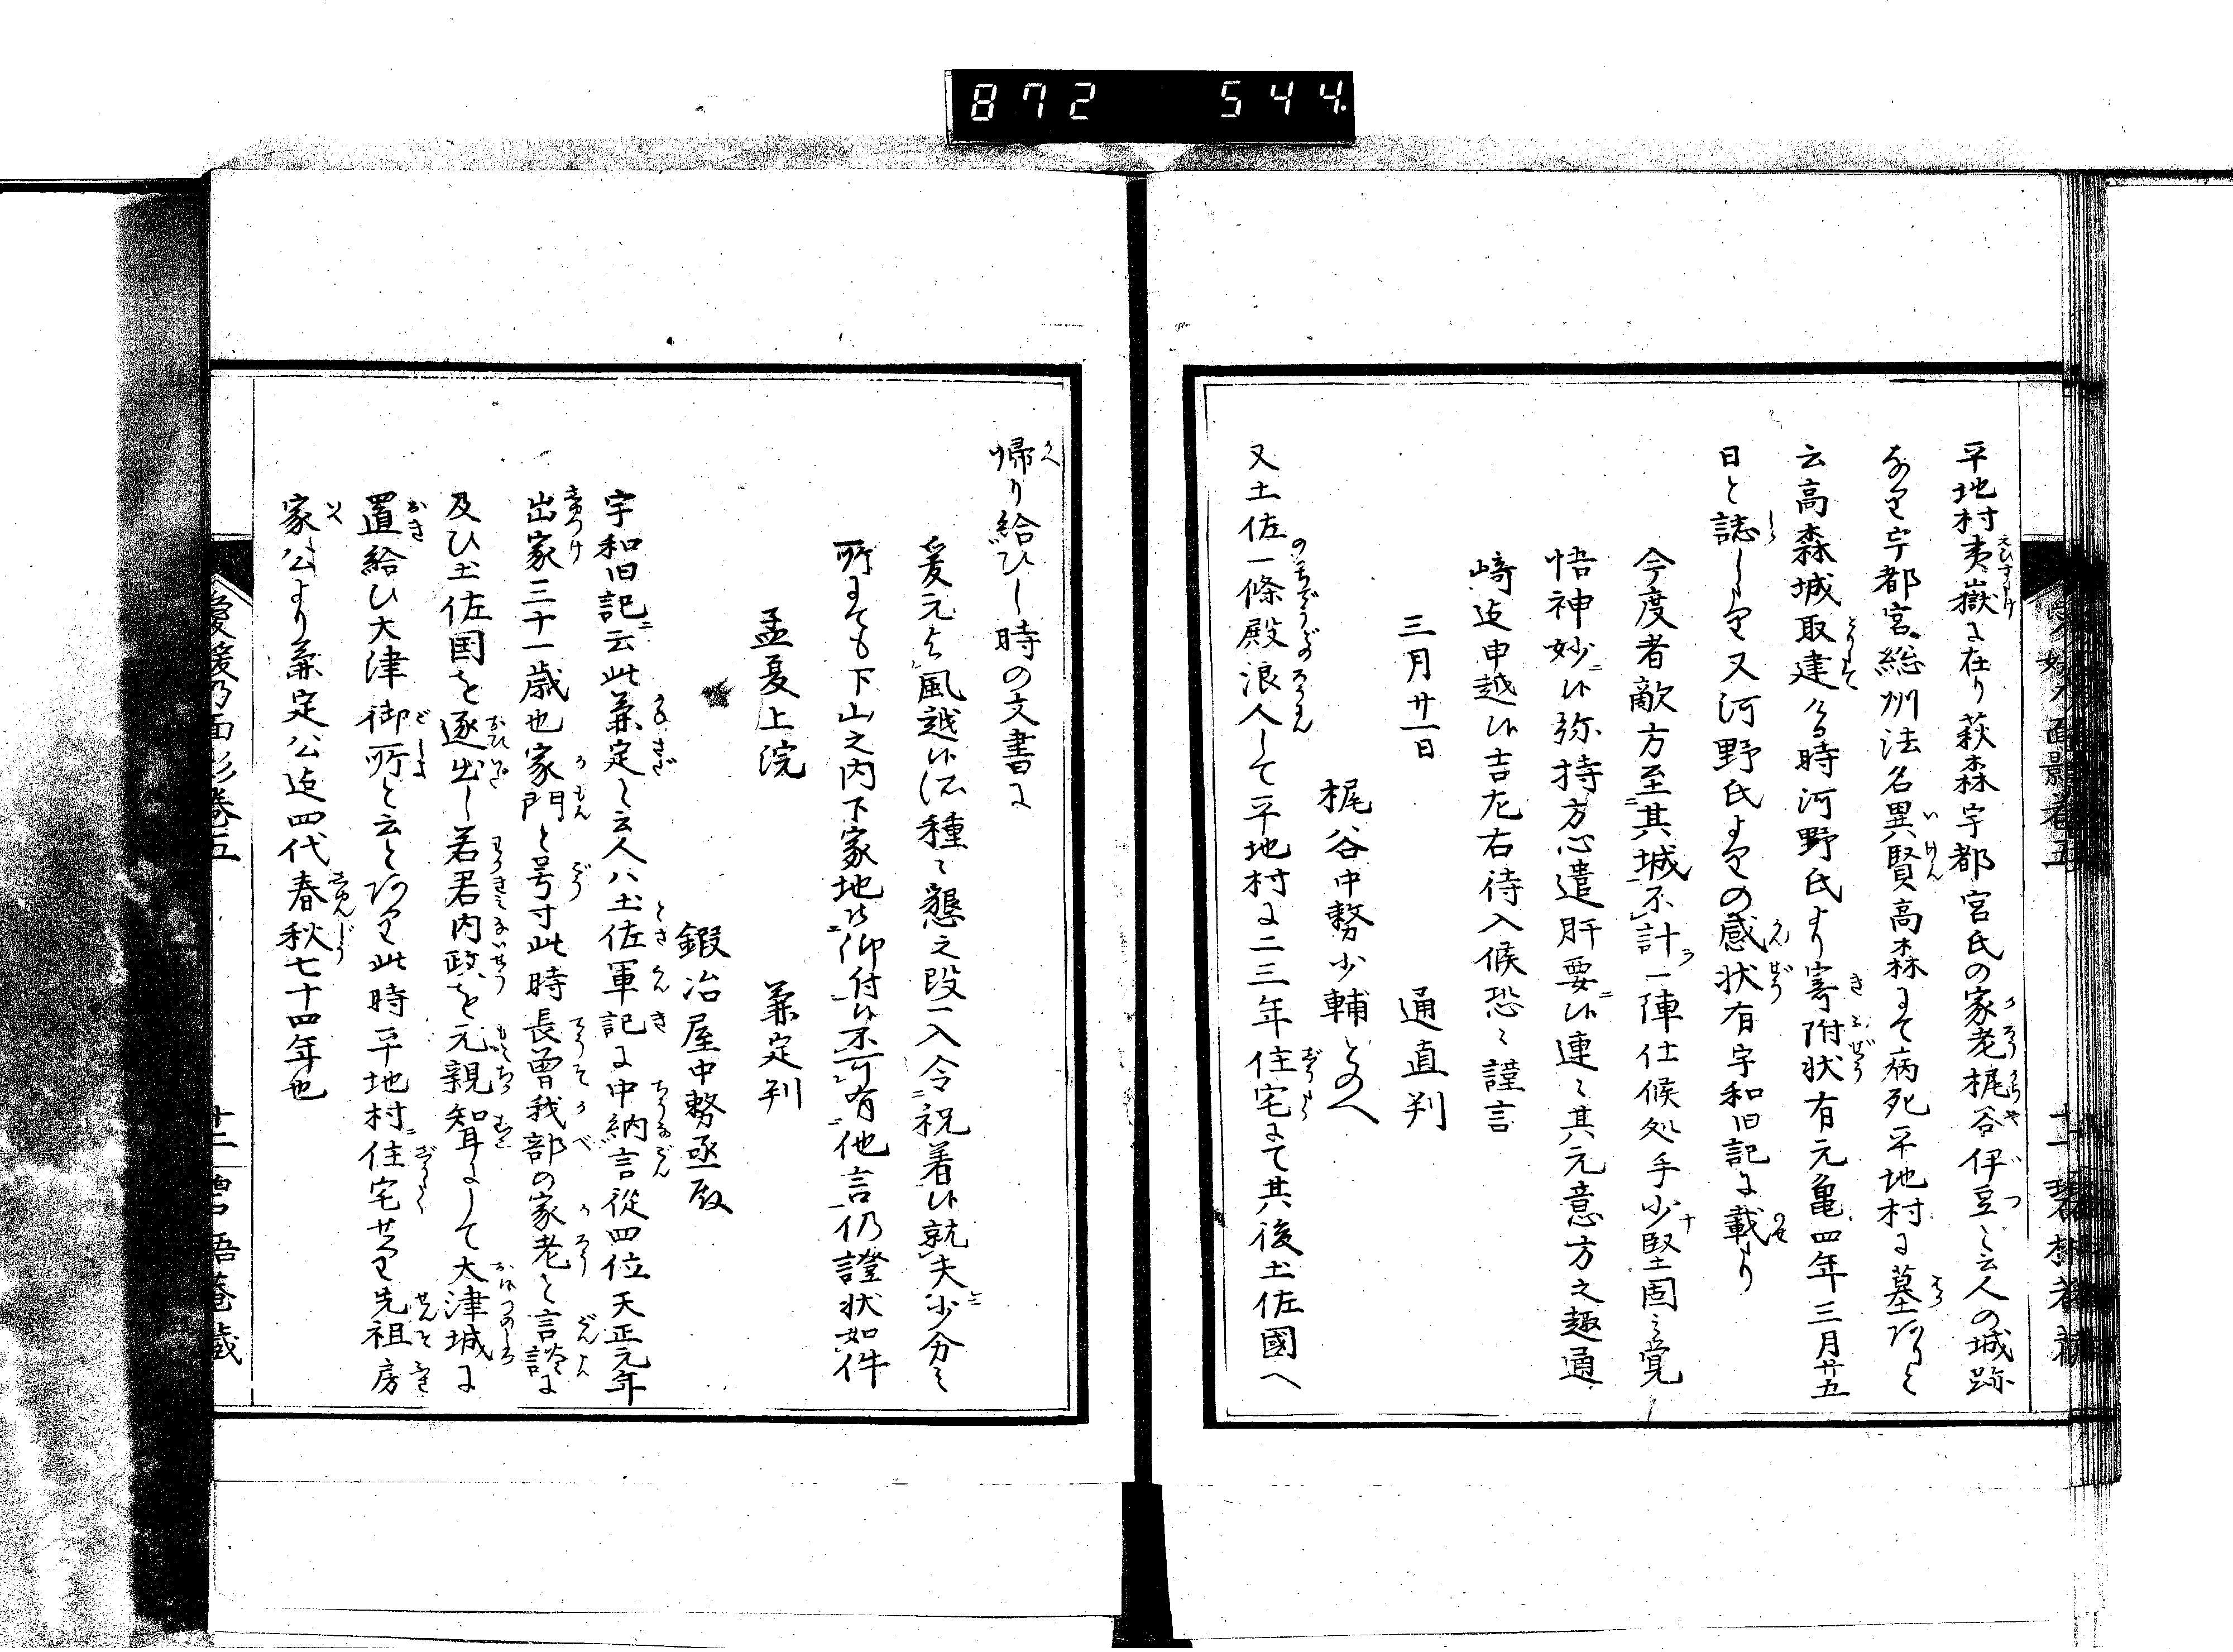 872 544
平地村夷嶽に在り萩森宇都宮氏の家老梶谷伊豆と云人の城跡
なり宇都宮総州法名異賢高森にて病死平地村に墓ありと
云高森城取建ける時河野氏より寄附状有元亀四年三月廿五
日と誌しあり又河野氏よりの感状有宇和旧記に載り
今度者敵方至其城不計一陣仕候処手少堅固之覚
悟神妙ニ候弥持方心遣肝要ニ候連々其元意方之趣通
崎迄申越候吉左右待入候恐々謹言
三月廿一日 通直判
梶谷中務少輔とのへ
又土佐一條殿浪人して平地村に二三年住宅にて其後土佐國へ
帰り給ひし時の文書に
爰元与風越候処種々懇之段一入令祝着候就夫少分之
所にても下山之内下家地ニ仰付候不可有他言仍證状如件
孟夏上浣 兼定判
鍛冶屋中務亟殿
宇和旧記ニ云此兼定と云人ハ土佐軍記に中納言従四位天正元年
出家三十一歳也家門と号す此時長曽我部の家老と言談に
及ひ土佐国を逐出し若君内政を元親聟にして大津城に
置給ひ大津御所と云とあり此時平地村ニ住宅せり先祖房
家公より兼定公迄四代春秋七十四年也
愛媛乃面影巻五